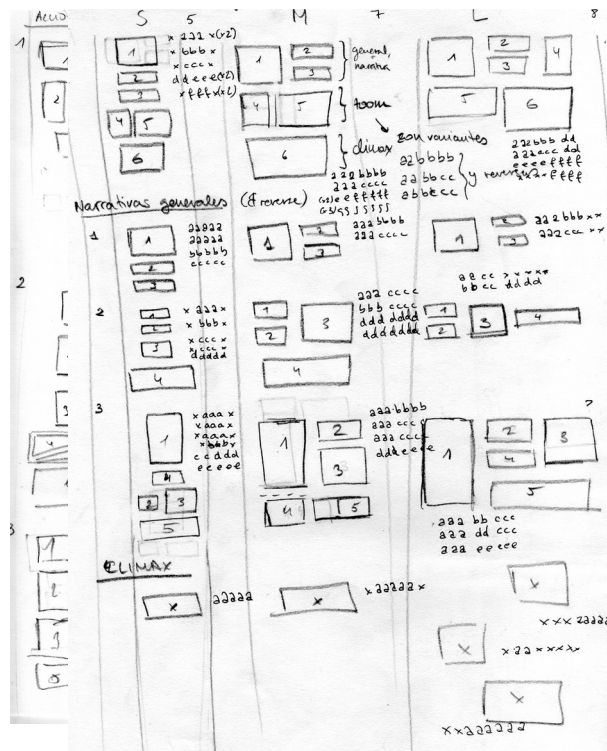 S 5 M 7 L 8
1
x aaa x (x2)
x bbb x
x ccc x
ddeee (x2)
x fff x (x2)
1
2
3
4
5
6
1
2
3
4
5
6
} general, narrativa
} zoom
} climax
aaabbbb
aaacccc
1
2
3
4
5
6
con variantes
aabbbb
aabbcc
abbccc
} y reverse
aaabbb dd
aaaccc dd
eeeeffff
Narrativas generales (& reverse)
1
1
2
3
aaaaa
aaaaa
bbbbb
ccccc
1
2
3
aaabbbb
aaacccc
1
2
3
aaabbbxx
aaaccc xx
2
1
2
3
4
x aaa x
x bbb x
x ccc x
x ccc x
ddddd
1
2
3
4
aaa cccc
bbb cccc
ddd dddd
ddddddd
aacc xxxx
bbcc dddd
1
2
3
4
3
1
4
2
3
5
x aaa x
x aaa x
x aaa x
x bbb x
ccddd
eeeee
1
2
3
4
5
aaabbbb
aaa ccc
aaa ccc
dddeeee
1
2
3
4
5
aaa bb ccc
aaa dd ccc
aaa ee ccc
CLIMAX
x
aaaaa
x
xaaaaax
x
xxxaaaaa
x
xaaxxxxx
x
xxaaaaaa